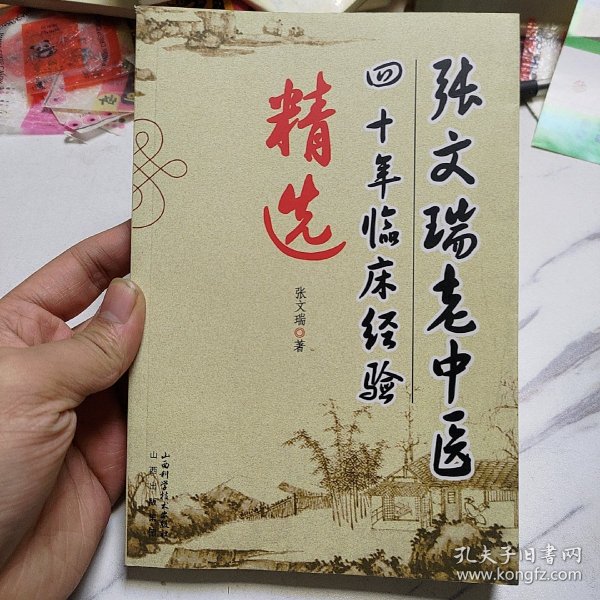 张文瑞老中医
四十年临床经验
精选
张文瑞◎著
山西科学技术出版社
山西出版
孔夫子旧书网
www.kongfz.com